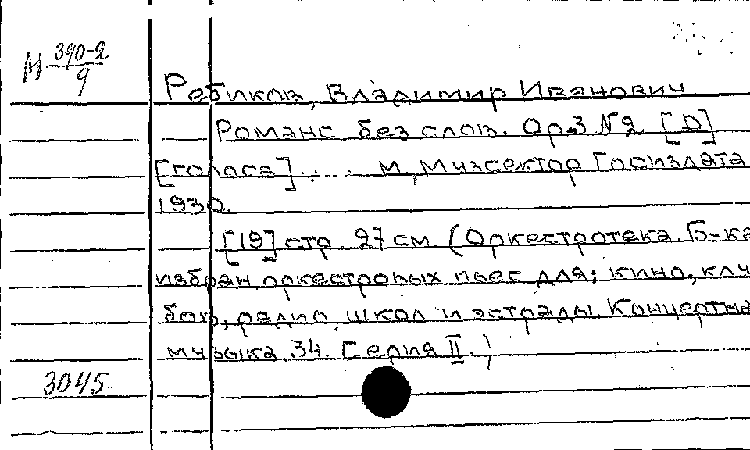 М 390-2
9
Ребиков, Владимир Иванович
Романс без слов. Ор.3 №2 [D]
[голоса] .... М, Музсектор Госиздата
1930.
[19] стр. 27 см. (Оркестротека. Б-ка
избран. оркестровых пьес для: кино, клу
бов, радио, школ и эстрады. Концертна
музыка 34. Серия II.)
3045